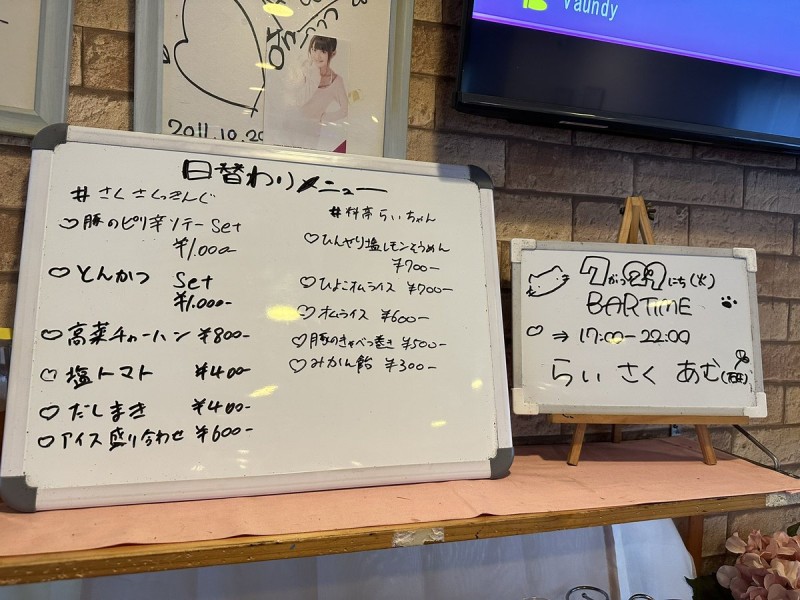 Vaundy
2011.10.29
日替わりメニュー
#さくさくっきんぐ
♡豚のピリ辛ソテーSet
¥1,000-
♡とんかつ Set
¥1,000-
♡高菜チャーハン ¥800-
♡塩トマト ¥400-
♡だしまき ¥400-
♡アイス盛り合わせ ¥600-
#料亭らいちゃん
♡ひんやり塩レモンそうめん
¥700-
♡ひよこオムライス ¥700-
♡オムライス ¥600-
♡豚のきゃべつ巻き ¥500-
♡みかん飴 ¥300-
7がつ29にち(火)
BARTIME
♡ ⇒ 17:00-22:00
らい さく あむ